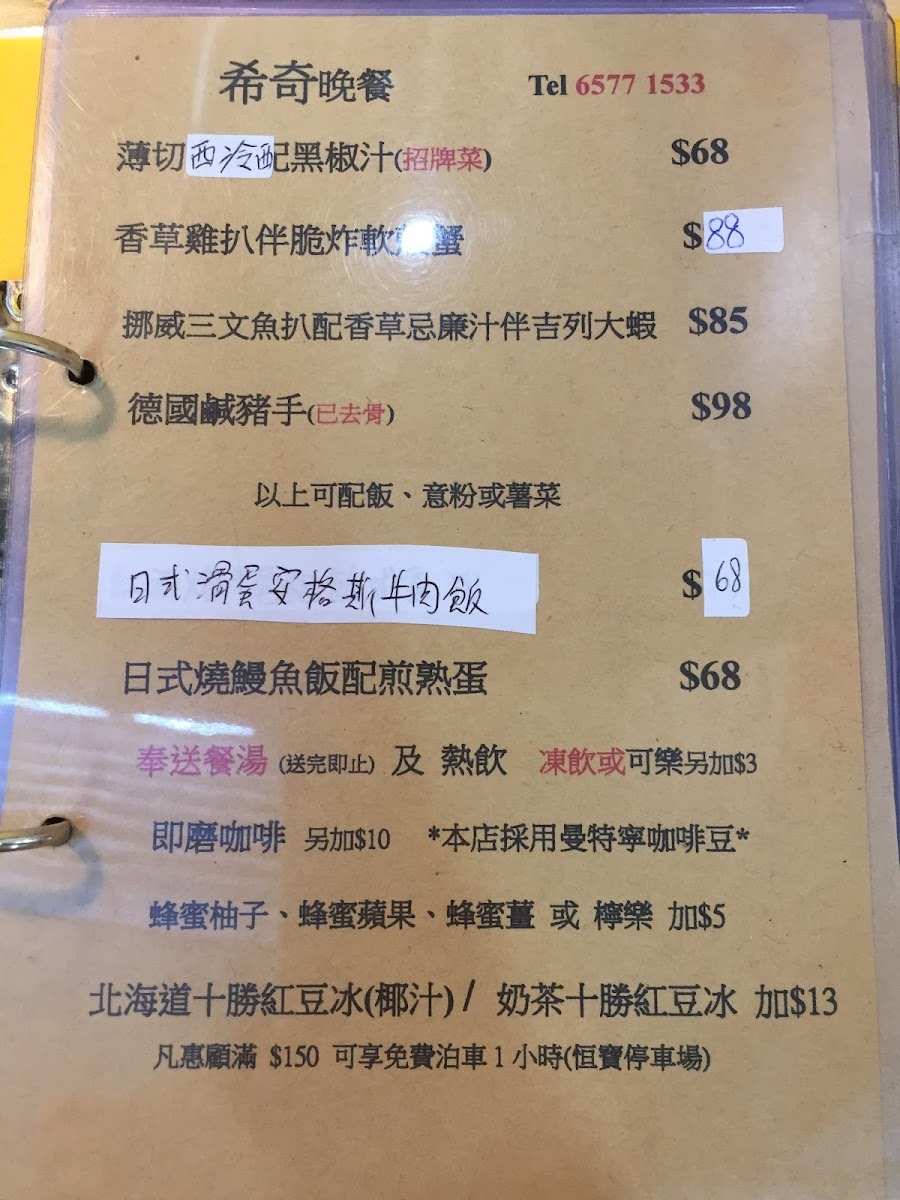 希奇晚餐 Tel 6577 1533
薄切西冷配黑椒汁(招牌菜) $68
香草雞扒伴脆炸軟蟹 $88
挪威三文魚扒配香草忌廉汁伴吉列大蝦 $85
德國鹹豬手(已去骨) $98
以上可配飯、意粉或薯菜
日式滑蛋安格斯牛肉飯 $68
日式燒鰻魚飯配煎熟蛋 $68
奉送餐湯 (送完即止) 及 熱飲 凍飲或可樂另加$3
即磨咖啡 另加$10 *本店採用曼特寧咖啡豆*
蜂蜜柚子、蜂蜜蘋果、蜂蜜薑 或 檸樂 加$5
北海道十勝紅豆冰(椰汁) / 奶茶十勝紅豆冰 加$13
凡惠顧滿 $150 可享免費泊車 1 小時(恒寶停車場)